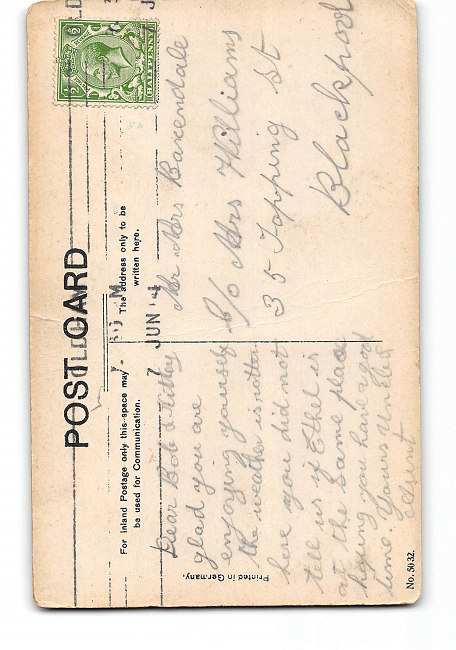 POST CARD
For Inland Postage only this space may
be used for Communication.
The address only to be
written here.
HALFPENNY
7 JUN 14
Dear Bob & Kitty
glad you are
enjoying yourselfs
the weather is not
here you did not
tell us if Ethel is
at the same place
hoping you have a good
time. Yours Uncle &
Aunt
Mr Mrs Baxendale
C/o Mrs Williams
35 Topping St
Blackpool
Printed in Germany.
No. 5032.